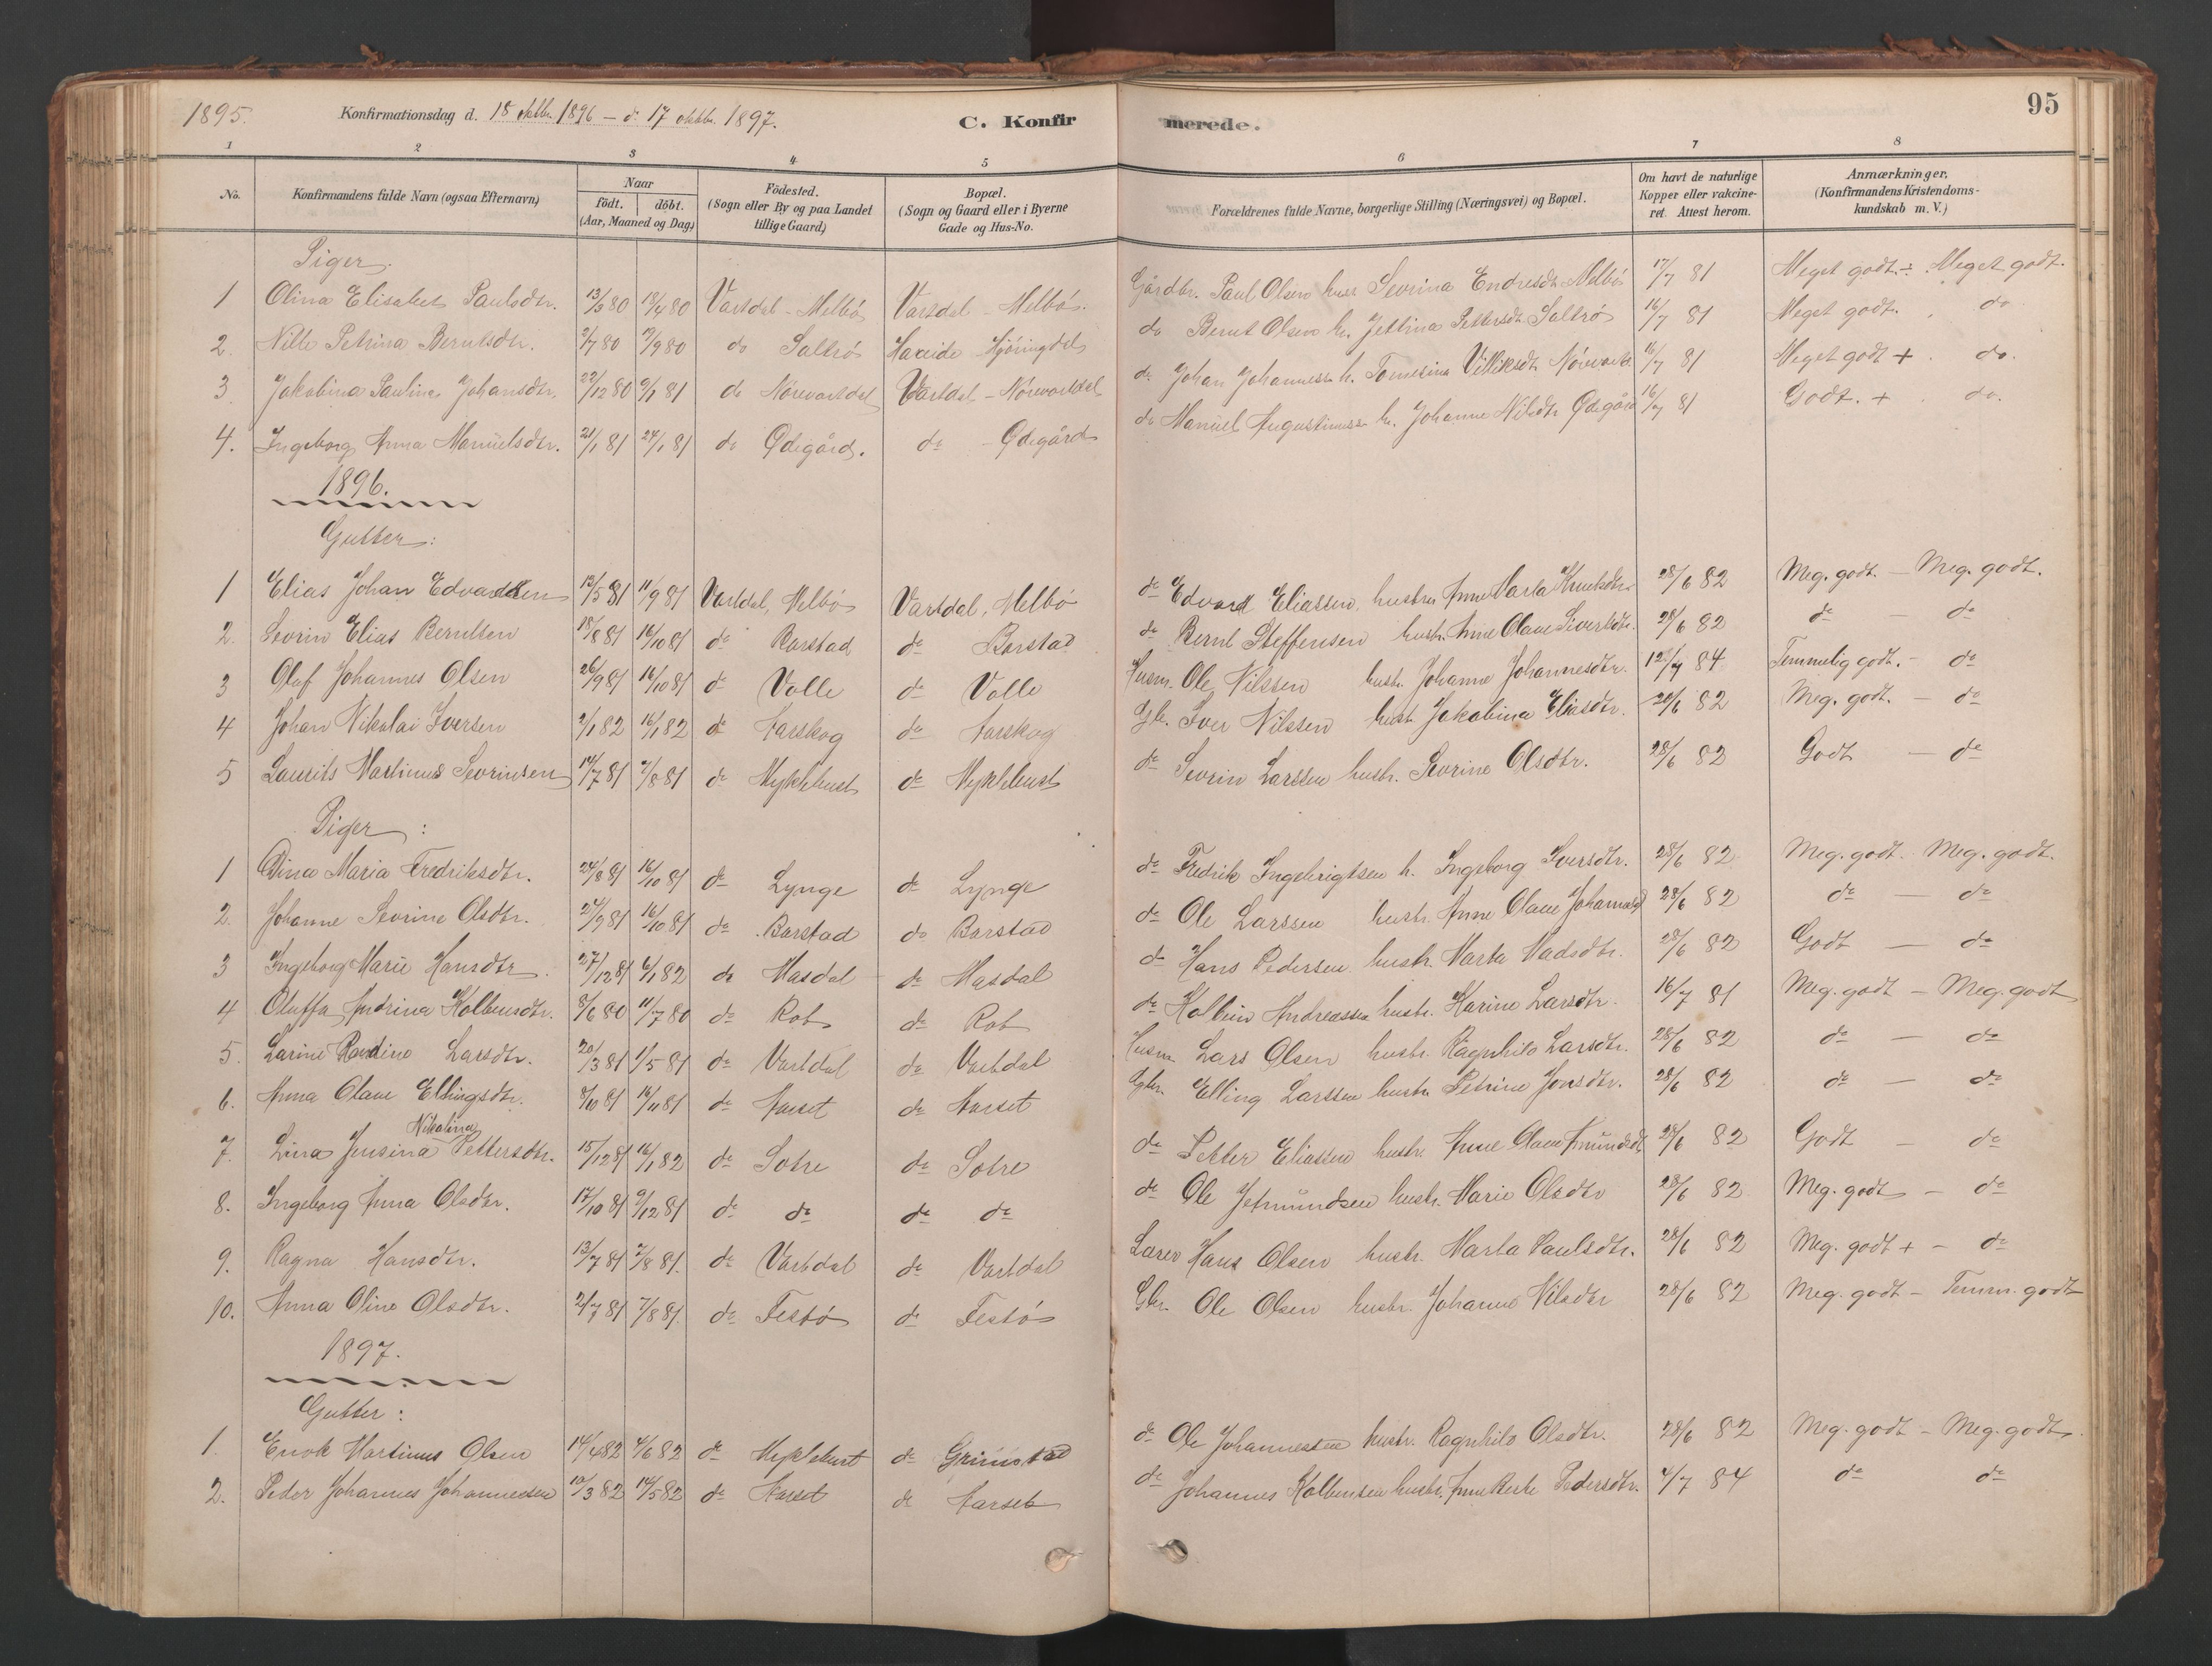 1895. Konfirmationsdag d. 18 oktbr. 1896 – d. 17 oktbr. 1897. C. Konfirmerede. 95
1 2 3 4 5 6 7 8
No. Konfirmandens fulde Navn (ogsaa Efternavn) Naar födt. döbt. (Aar, Maaned og Dag) Födested. (Sogn eller By og paa Landet tillige Gaard) Bopæl. (Sogn og Gaard eller i Byerne Gade og Hus-No. Forældrenes fulde Navne, borgerlige Stilling (Næringsvei) og Bopæl. Om havt de naturlige Kopper eller vakcineret. Attest herom. Anmærkninger. (Konfirmandens Kristendomskundskab m. V.)
Piger.
1 Olina Elisabet Paulsdtr. 13/3 80 18/4 80 Vartdal - Melbö Vartdal - Melbö. Gårdbr. Paul Olsen hustr Sevrina Endresdtr Melbö 17/7 81 Meget godt. ÷ Meget godt.
2. Nille Petrina Berntsdtr. 2/7 80 19/9 80 do Saltrö Hareide Hjöringdal do Bernt Olsen h. Jettina Pettersdtr Saltrö 16/7 81 Meget godt. do
3. Jakobina Paulina Johansdtr. 22/12 80 9/1 81 do Nörevartdal Vartdal - Nörevartdal do Johan Johanness. h. Tomesina Villiksdtr Nörevartd. 16/7 81 Meget godt + do.
4. Ingeborg Anna Manuelsdtr. 21/1 81 24/1 81 do Ødegård. do - Ødegård do Manüel Augustinuss h. Johanne Nilsdtr Ødegård 16/7 81 Godt. + do.
1896.
Gutter:
1 Elias Johan Edvardsen 12/5 81 11/9 81 Vartdal, Melbö Vartdal, Melbö do Edvard Eliassen, hustru Anne Marta Knutsdtr. 28/6 82 Meg. godt. – Meg. godt.
2. Sevrin Elias Berntsen 18/8 81 16/10 81 do Barstad do Barstad do Bernt Steffensen hustr. Anne Olave Sivertsdtr. 28/6 82 do – do
3 Olaf Johannes Olsen 26/9 81 16/10 81 do Volle do Volle Husm. Ole Nilssen hustr. Johanne Johannesdtr. 12/7 84 Temmelig godt. – do
4 Johan Nikolai Iversen 2/1 82 16/1 82 do Aarskog do Aarskog Gbr. Iver Nilssen hust. Jakobina Eliasdtr. 28/6 82 Meg. godt. – do
5 Laurits Martinus Sevrinsen 14/7 81 7/8 81 do Myklebust do Myklebust do Sevrin Larssen hustr. Sevrine Olsdtr. 28/6 82 Godt – do
Piger:
1 Dina Maria Fredriksdtr. 24/8 81 16/10 81 do Lynge do Lynge do Fredrik Ingebrigtsen h. Ingeborg Iversdtr. 28/6 82 Meg. godt. Meg. godt.
2. Johanne Sevrine Olsdtr. 24/9 81 16/10 81 do Barstad do Barstad do Ole Larssen hustr. Anne Olave Johannesd 28/6 82 do – do
3 Ingeborg Marie Hansdtr. 27/12 81 6/1 82 do Masdal do Masdal do Hans Pedersen hustr. Marta Madsdtr. 28/6 82 Godt – do
4 Oluffa Andrina Kolbensdtr. 8/6 80 11/7 80 do Rot do Rot do Kolbein Andreassen hustr. Karine Larsdtr. 16/7 81 Meg. godt – Meg. godt
5. Larine Randine Larsdtr. 20/3 81 1/5 81 do Vartdal do Vartdal Husm Lars Olsen hustr. Ragnhild Larsdtr. 28/6 82 do – do
6. Anna Olave Ellingsdtr. 8/10 81 16/11 81 do Aarset do Aarset Gbr. Elling Larssen hustr. Petrine Jonsdtr. 28/6 82 do – do
7. Lina Jensina Nikolina Pettersdtr. 15/12 81 16/1 82 do Sætre do Sætre do Petter Eliassen hustr. Anne Olave Amundsdtr 28/6 82 Godt – do
8. Ingeborg Anna Olsdtr. 17/10 81 9/12 81 do do do do do Ole Jetmündsen hustr. Marie Olsdtr 28/6 82 Meg. godt – do
9. Ragna Hansdtr. 13/7 81 7/8 81 do Vartdal do Vartdal Lærer Hans Olsen hustr. Marta Paulsdtr. 28/6 82 Meg. godt + – do
10. Anna Oline Olsdtr. 2/7 81 7/8 81 do Festö do Festö Gbr. Ole Olsen hustr. Johanne Nilsdtr 28/6 82 Meg. godt – Temm. godt
1897.
Gutter:
1. Enok Martinus Olsen 14/4 82 4/6 82 do Myklebust do Grimstad do Ole Johannessen hustr. Ragnhild Olsdtr. 28/6 82 Meg. godt – Meg. godt
2. Peder Johannes Johannessen 10/3 82 14/5 82 do Aarset do Aarset do Johannes Kolbensen hustr. Anne Berte Pedersdtr. 4/7 84 do do